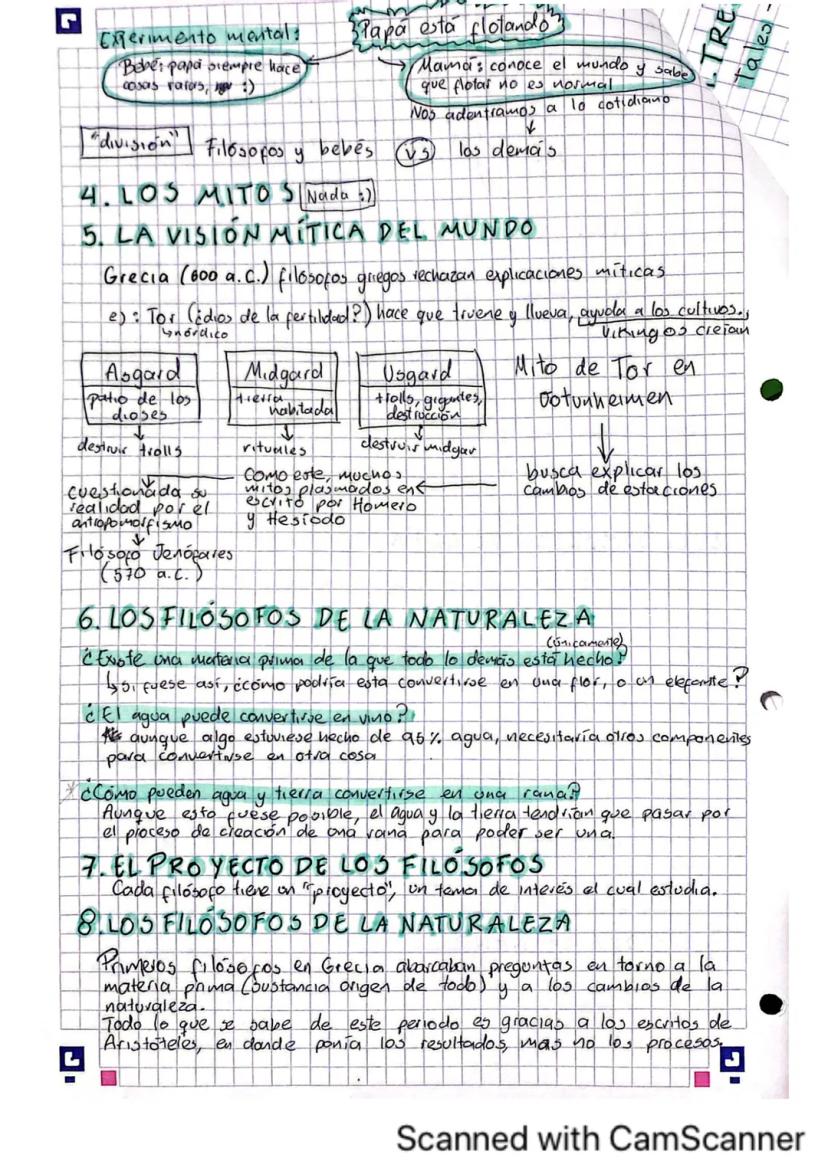 Papá está flotando
Experimento mental:
Bebé: papá siempre hace
cosas raras, :)
Mamá: conoce el mundo y sabe
que flotar no es normal
Nos adentramos a lo cotidiano
"división" Filósofos y bebés VS los demás
1. TRE
tales
4. LOS MITOS Nada :)
5. LA VISIÓN MÍTICA DEL MUNDO
Grecia (600 a.C.) filósofos griegos rechazan explicaciones míticas
ej: Tor (¿dios de la fertilidad?) hace que truene y llueva, ayuda a los cultivos.
↳nórdico
Vikingos creían
Asgard
patio de los
dioses
destruir trolls
Midgard
tierra
habitada
rituales
Usgard
trolls, gigantes,
destrucción
destruir midgar
Mito de Tor en
Ootunheimen
busca explicar los
cambios de estaciones
Como este, muchos
mitos plasmados en
escrito por Homero
y Hesíodo
cuestionada su
realidad por el
antropomorfismo
Filósofo Jenófanes
(570 a.C.)
6. LOS FILÓSOFOS DE LA NATURALEZA
(únicamente)
¿Existe una materia prima de la que todo lo demás está hecho?
↳ Si fuese así, ¿cómo podría esta convertirse en una flor, o un elefante?
¿El agua puede convertirse en vino?
aunque algo estuviese hecho de 95% agua, necesitaría otros componentes
para convertirse en otra cosa
*¿Cómo pueden agua y tierra convertirse en una rana?
Aunque esto fuese posible, el agua y la tierra tendrían que pasar por
el proceso de creación de una rana para poder ser una.
7. EL PROYECTO DE LOS FILÓSOFOS
Cada filósofo tiene un "proyecto", un tema de interés el cual estudia.
8. LOS FILÓSOFOS DE LA NATURALEZA
Primeros filósofos en Grecia abarcaban preguntas en torno a la
materia prima (sustancia origen de todo) y a los cambios de la
naturaleza.
Todo lo que se sabe de este periodo es gracias a los escritos de
Aristóteles, en donde ponía los resultados, mas no los procesos.
Scanned with CamScanner